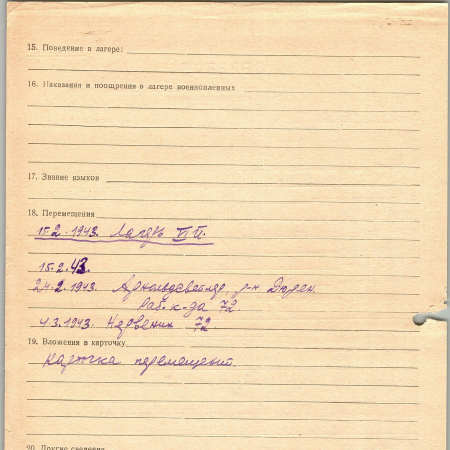 15. Поведение в лагере:
16. Наказания и поощрения в лагере военнопленных
17. Знание языков
18. Перемещения
15.2.1943. Лагерь VI Й.
15.2.43.
24.2.1943. Арнольдсвейлер, р-н Дюрен.
Раб. к-да 72.
4.3.1943. Нервених 72
19. Вложения в карточку
Карточка перемещений.
20. Другие сведения